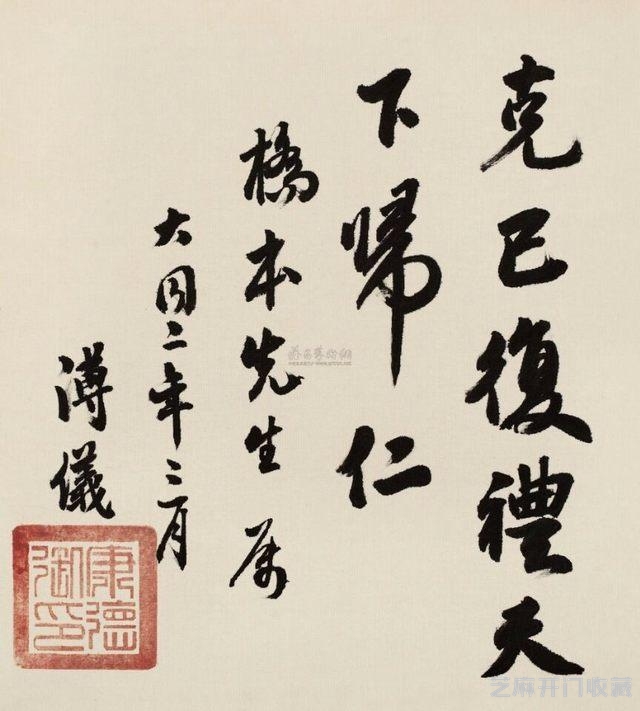 克己復禮天
下帰仁
橋本先生属
大同二年三月
溥儀
康德
御印
芝麻开门收藏